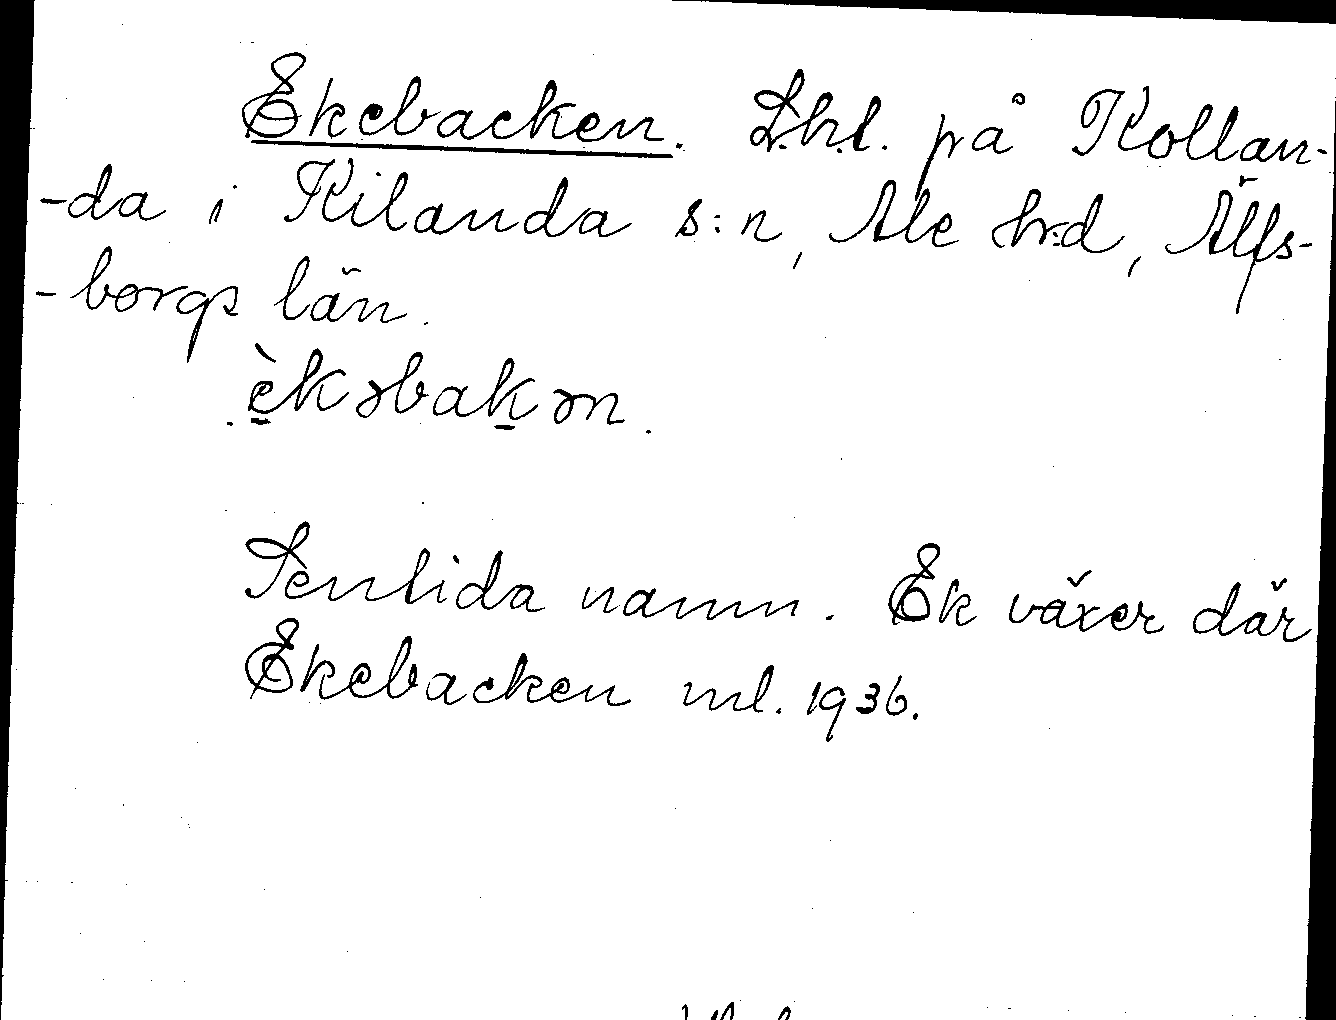 Ekebacken. L.h.l. på Kollan-
-da i Kilanda s:n, Ale h:d, Älfs-
-borgs län.
èkəbakən.
Sentida namn. Ek växer där
Ekebacken ml. 1936.